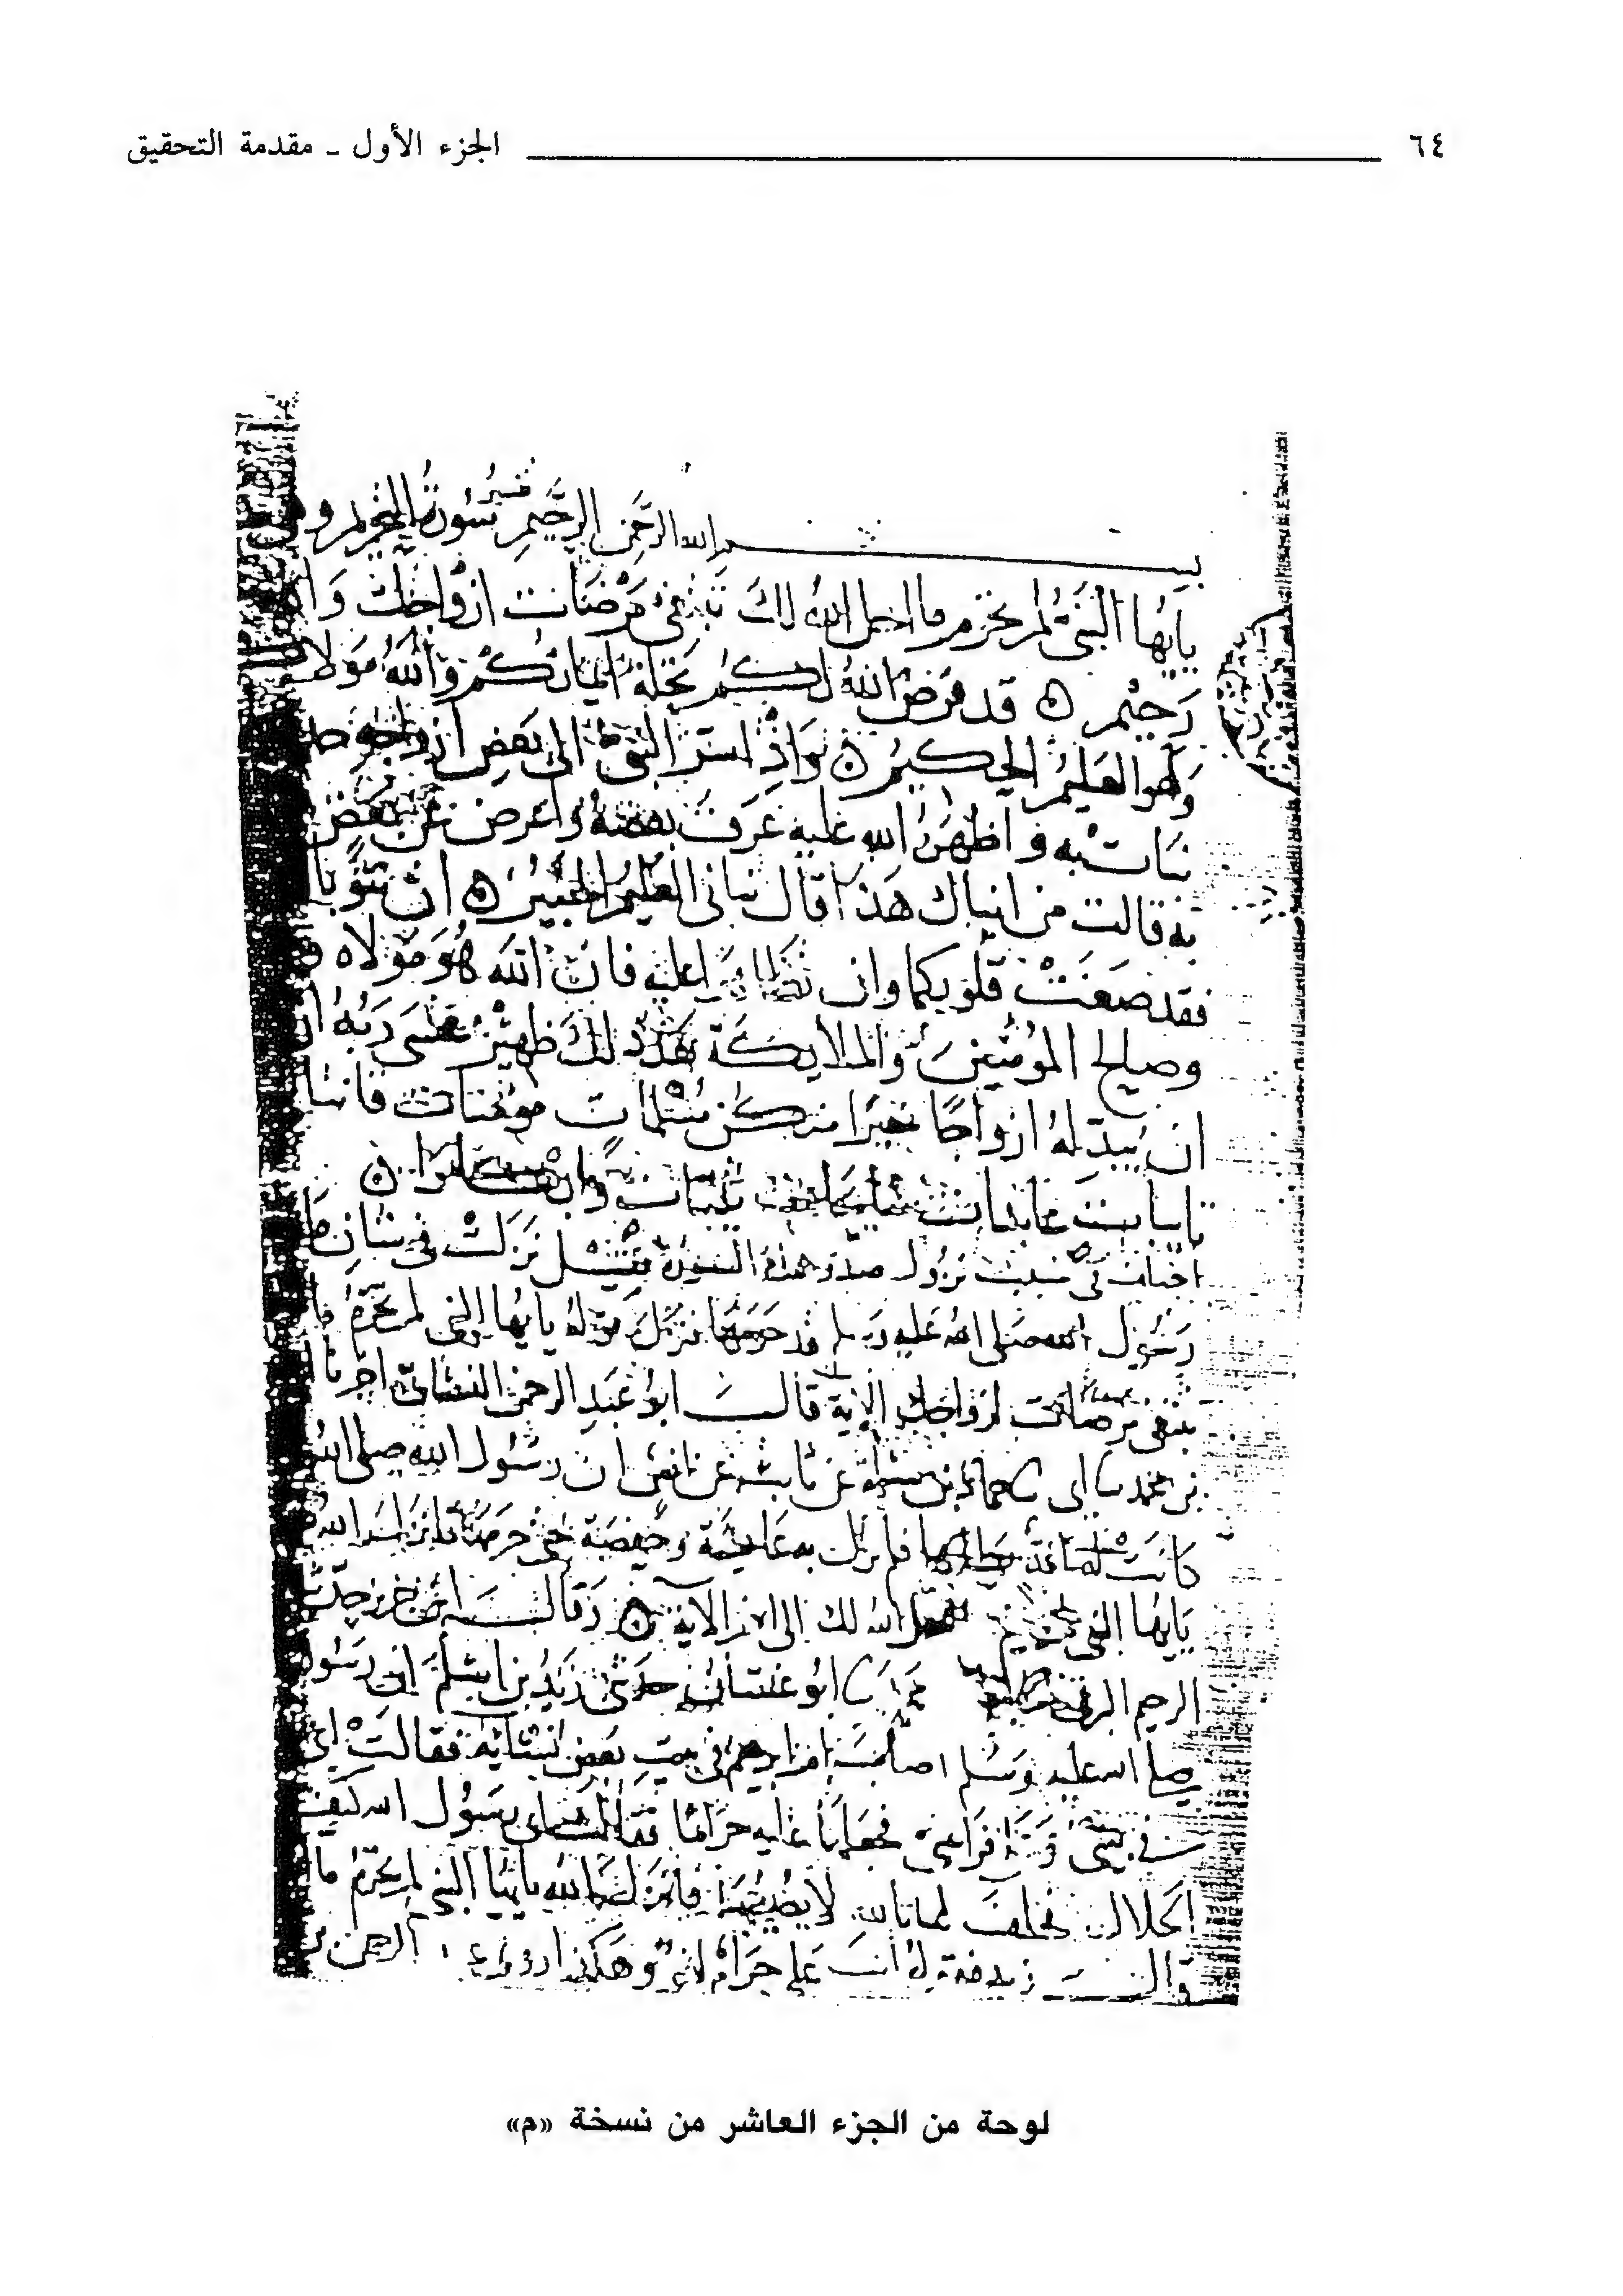 ٦٤ الجزء الأول ـ مقدمة التحقيق
بسم الله الرحمن الرحيم تفسير سورة التحريم وهي
يايها النبي لم تحرم ما احل الله لك تبتغي مرضات ازواجك وا
رحيم ه قد فرض الله لكم تحلة ايمانكم والله مولا
وهو العليم الحكيم ه واذ اسر النبي الى بعض ازواجه
نبات به واظهره الله عليه عرف بعضه واعرض عن بعض
به قالت من انباك هذا قال نباني العليم الخبير ه ان تتوبا
فقد صغت قلوبكما وان تظاهرا عليه فان الله هو مولاه
وصالح المؤمنين والملايكة بعد ذلك ظهير عسى ربه
ان يبدله ازواجا خيرا منكن مسلمات مومنات قانتا
تايبات عابدات سايحات ثيبات وابكارا ه
اختلف في سبب نزول صدر هذه السورة فقيل نزلت في شان
رسول الله صلى الله عليه وسلم قد حرمها فنزل قوله يايها النبي لم تحرم ما
تبتغي مرضات ازواجك الاية قال ابو عبد الرحمن النسائي اخبرنا
بن محمد ابي حماد بن سلمة عن ثابت عن انس ان رسول الله صلى الله
كانت له امة يطاها فلم تزل به عايشة وحفصة حتى حرمها فانزل الله
يايها النبي لم تحرم ما احل الله لك الى اخر الاية ه وقال ابن جرير حدثني
الرحيم البرقي ابو غسان حدثني زيد بن اسلم ان رسول
صلى الله عليه وسلم اصاب ام ابراهيم في بيت بعض نسايه فقالت اي
في بيتي وعلى فراشي فجعلها عليه حراما فقالت اي رسول الله كيف
الحلال فحلف لها بالله لا يصيبها فانزل الله يايها النبي لم تحرم ما
قال زيد فقوله انت علي حرام لغو وهكذا روى عبد الرحمن
لوحة من الجزء العاشر من نسخة «م»